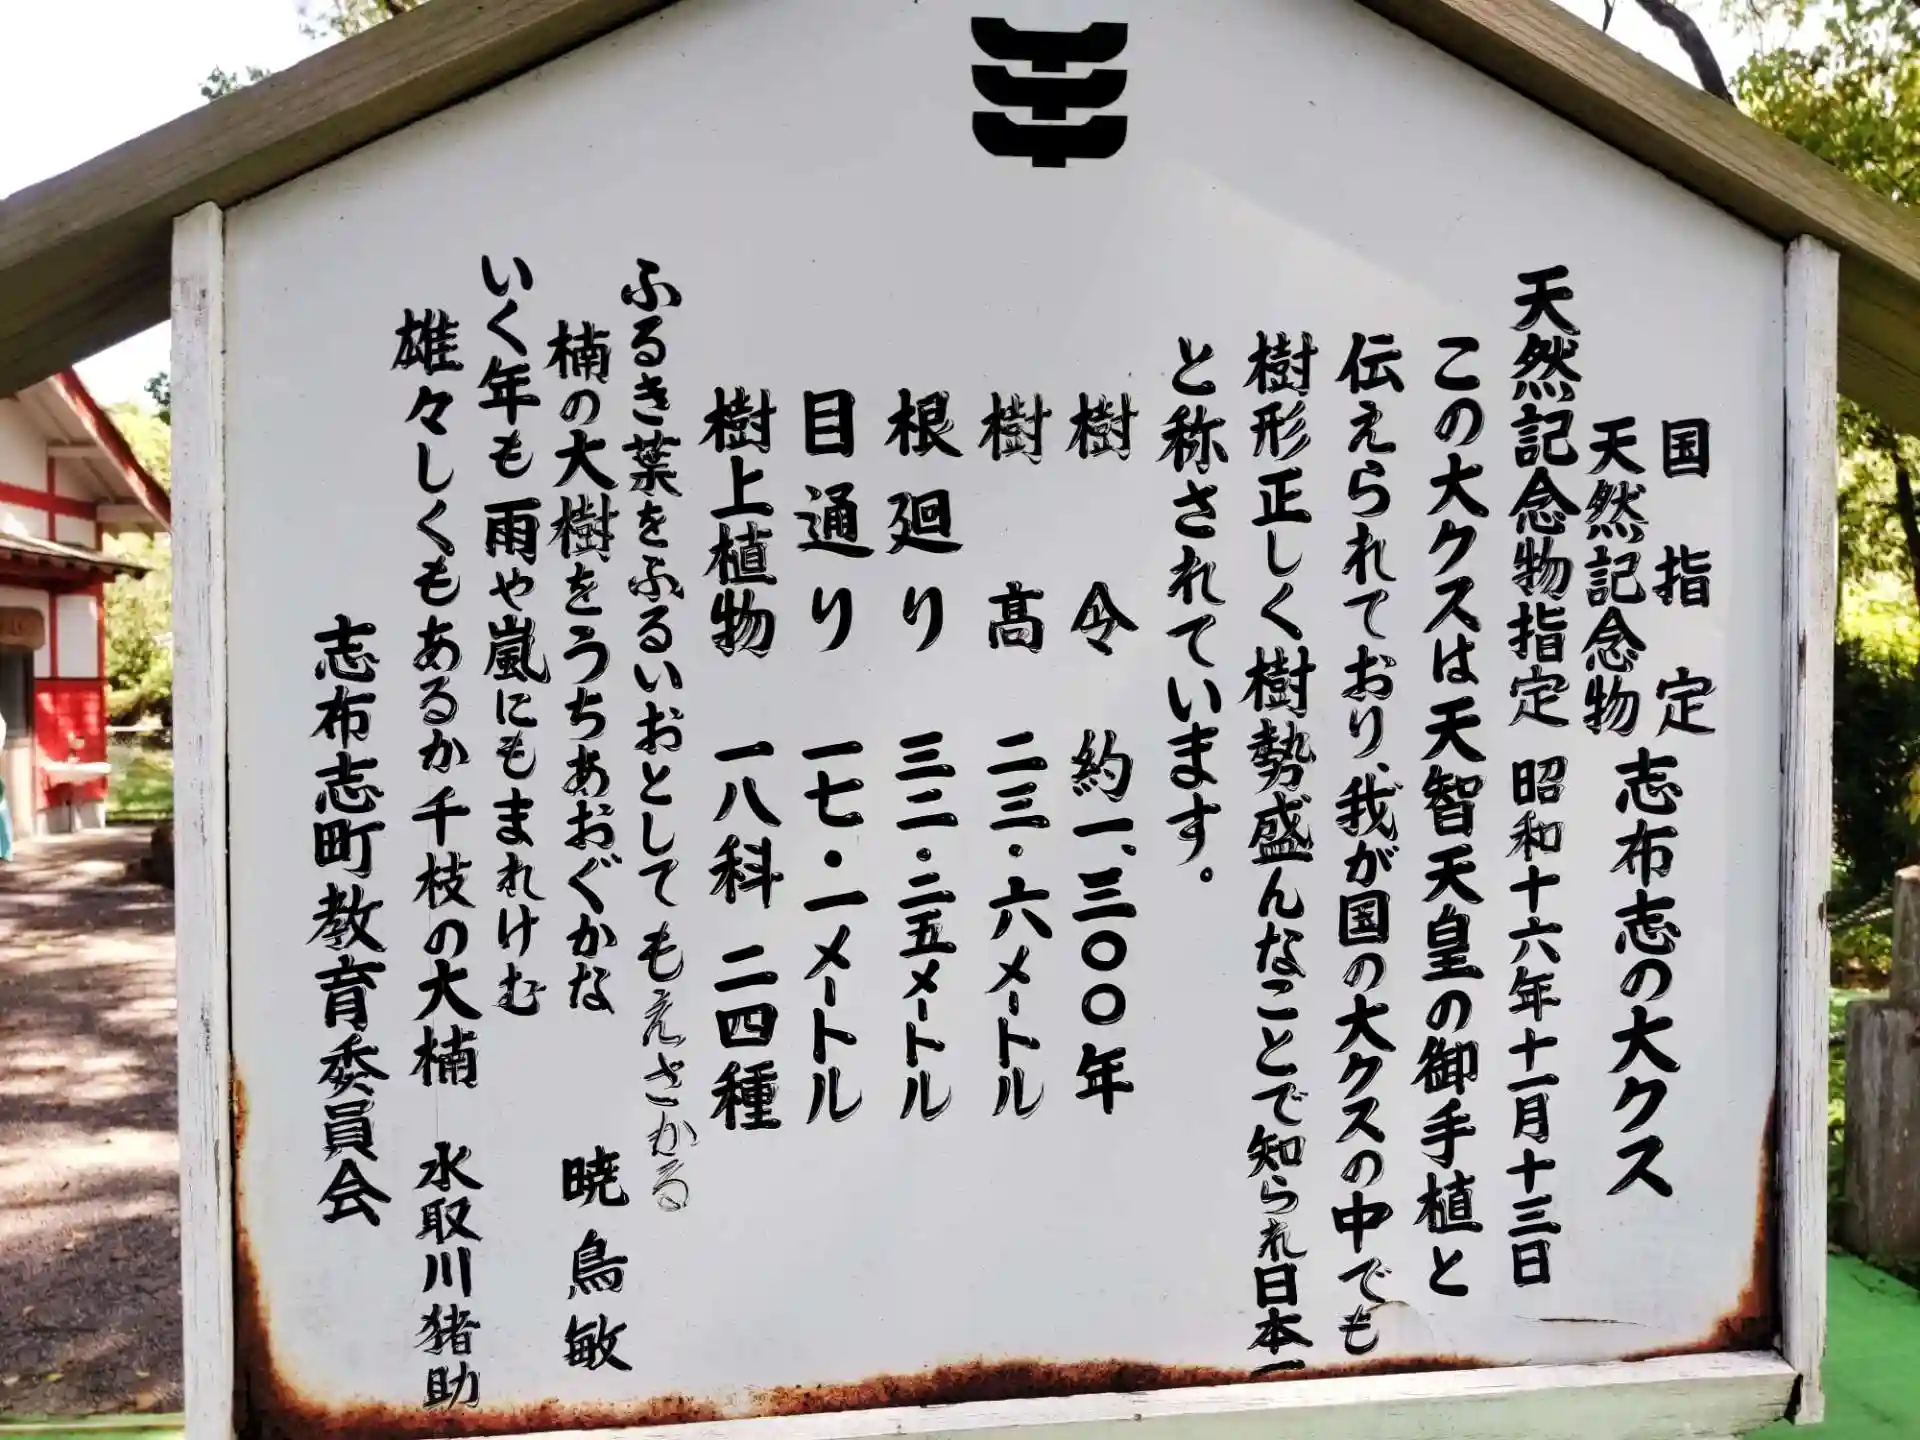 国指定
天然記念物
志布志の大クス
天然記念物指定 昭和十六年十一月十三日
この大クスは天智天皇の御手植と
伝えられており、我が国の大クスの中でも
樹形正しく樹勢盛んなことで知られ日本一
と称されています。
樹令 約一、三〇〇年
樹高 二三・六メートル
根廻り 三二・二五メートル
目通り 一七・一メートル
樹上植物 一八科 二四種
ふるき葉をふるいおとしてもえさかる
楠の大樹をうちあおぐかな 暁烏敏
いく年も雨や嵐にもまれけむ
雄々しくもあるか千枝の大楠 水取川猪助
志布志町教育委員会